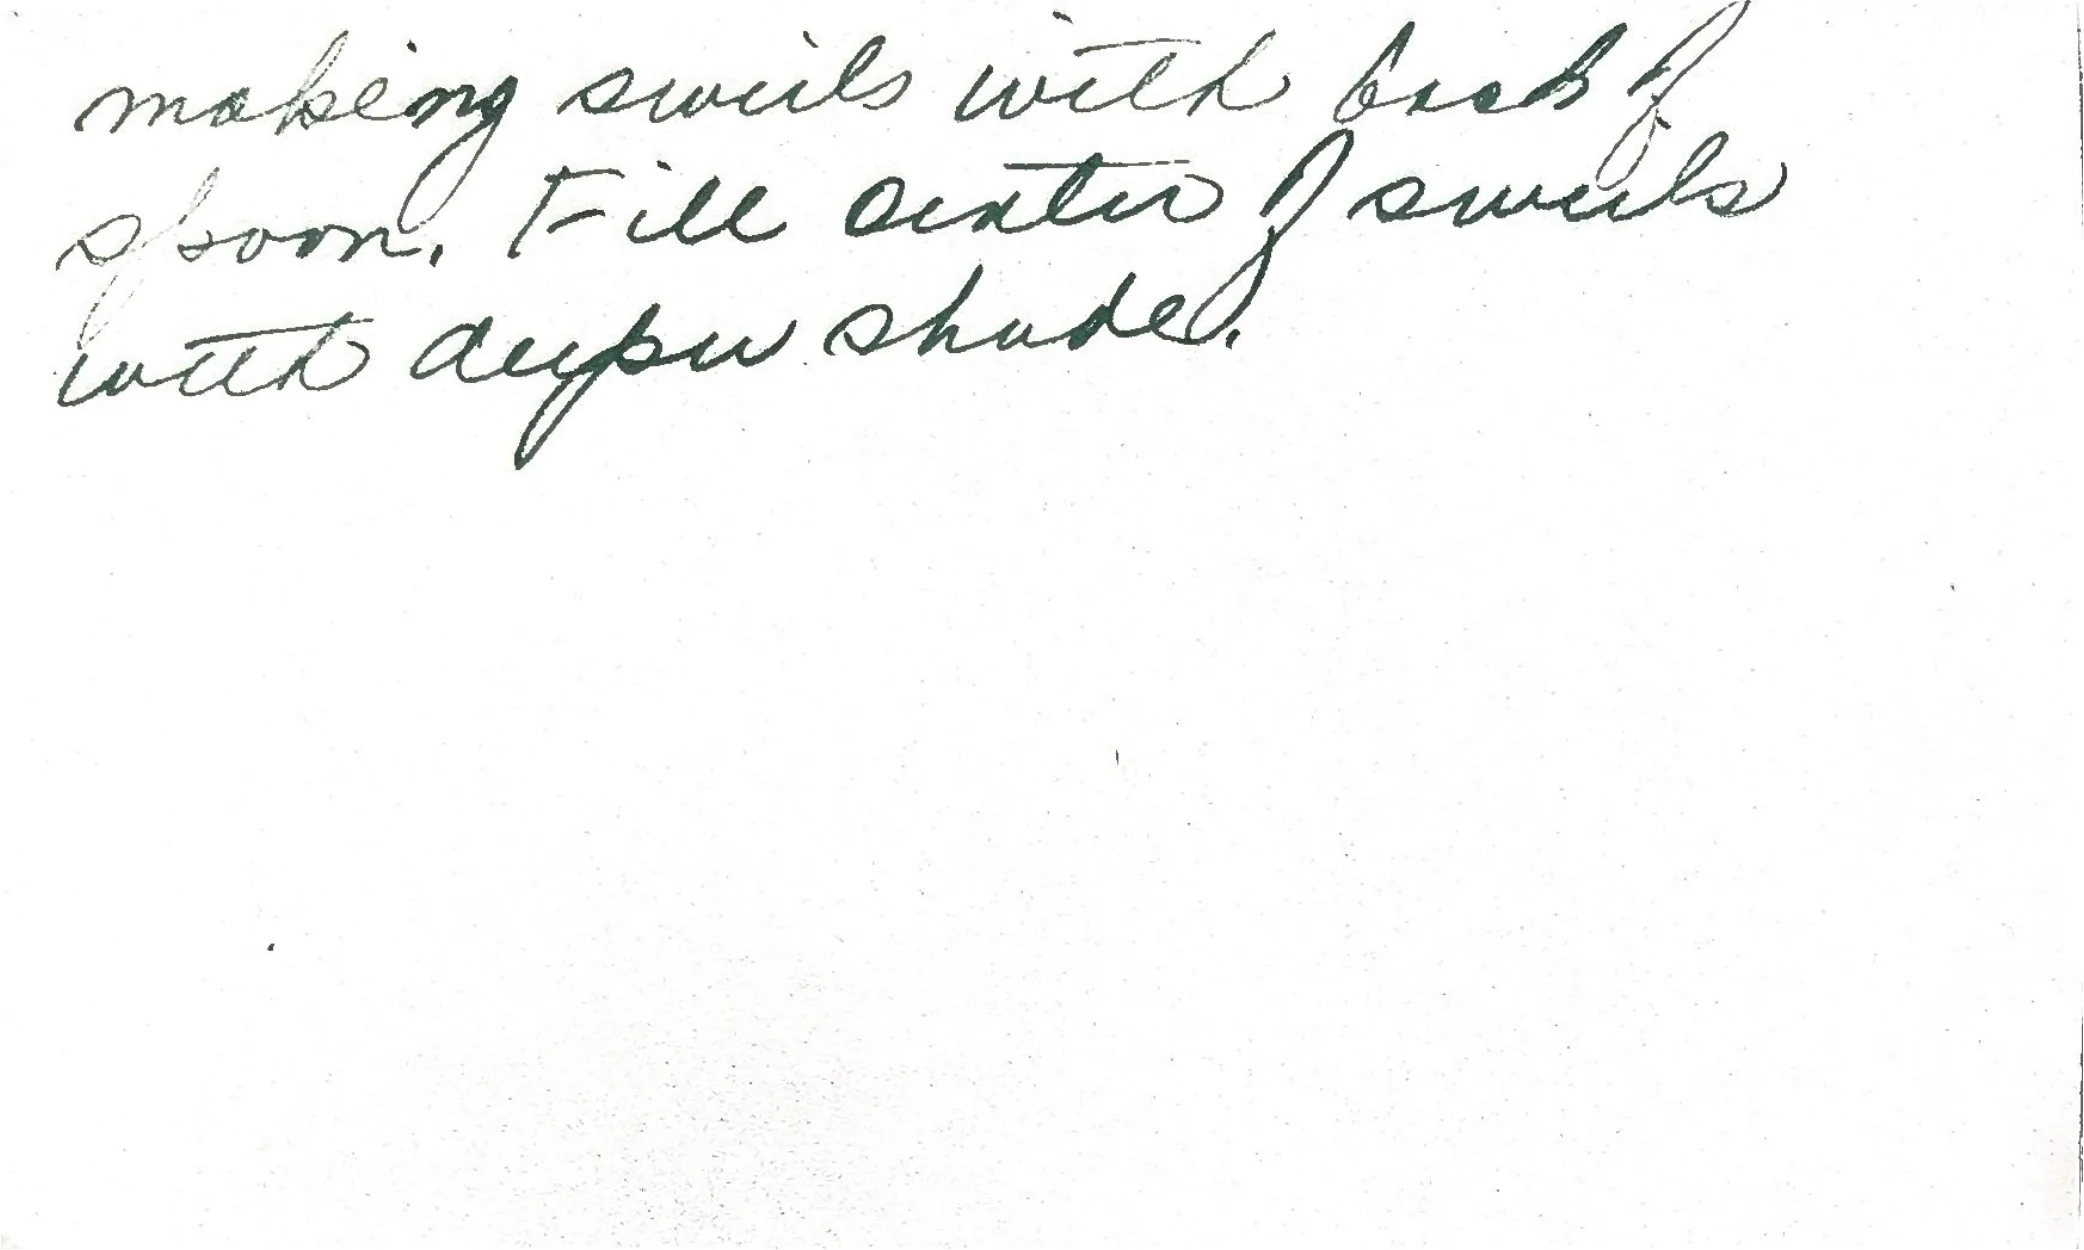 making swirls with back of
spoon. Fill center of swirls
with deeper shade.